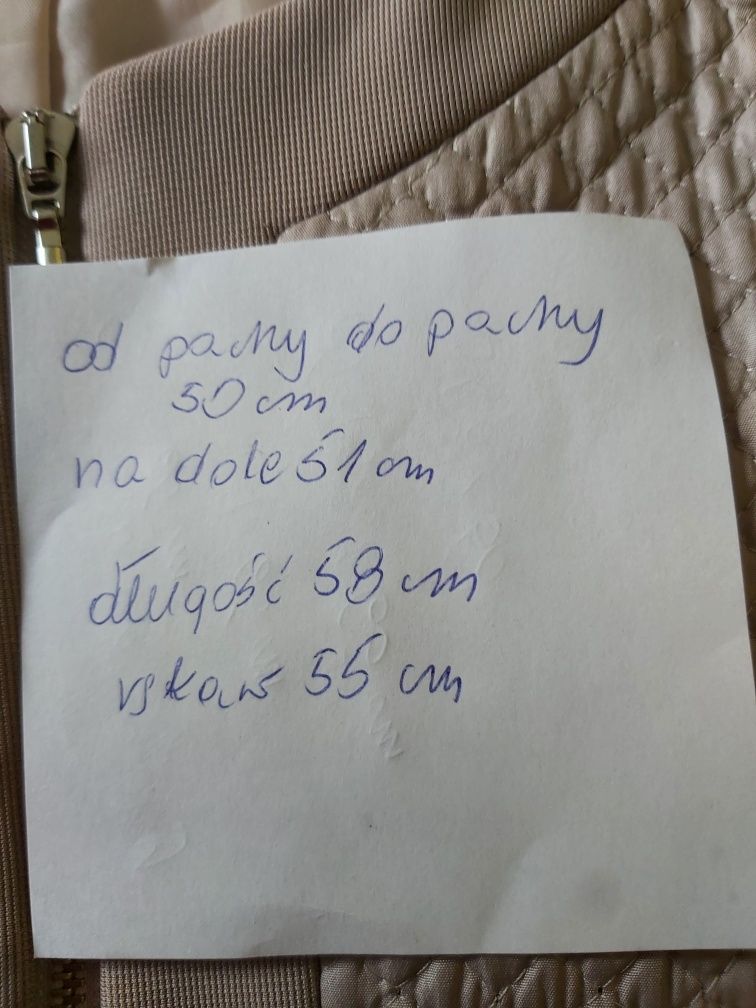 od pachy do pachy
50 cm
na dole 51 cm
długość 58 cm
rękaw 55 cm